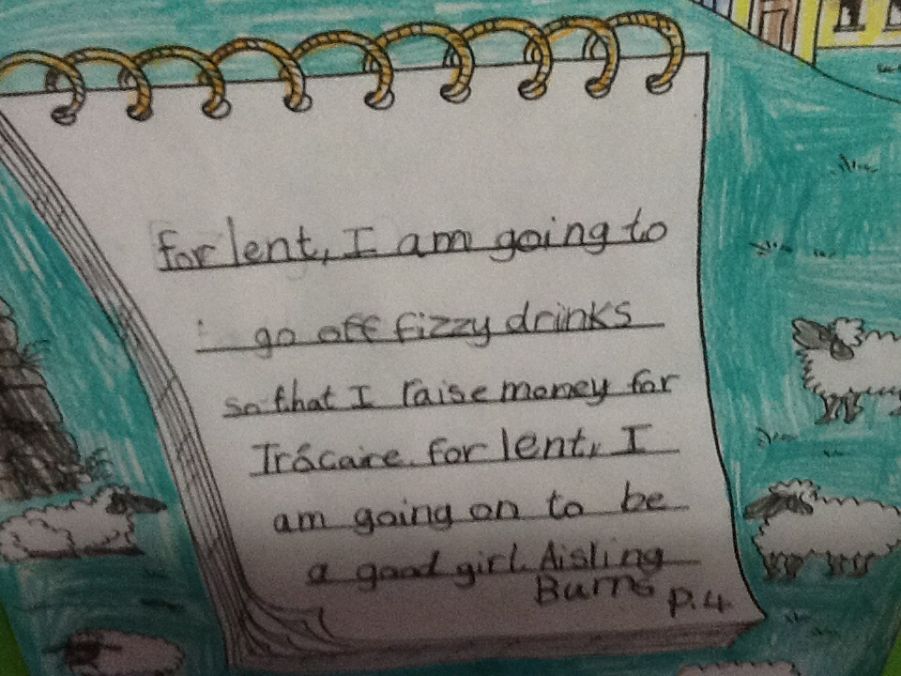 for lent, I am going to
go off fizzy drinks
so that I raise money for
Trócaire. for lent, I
am going on to be
a good girl. Aisling
Burns P.4